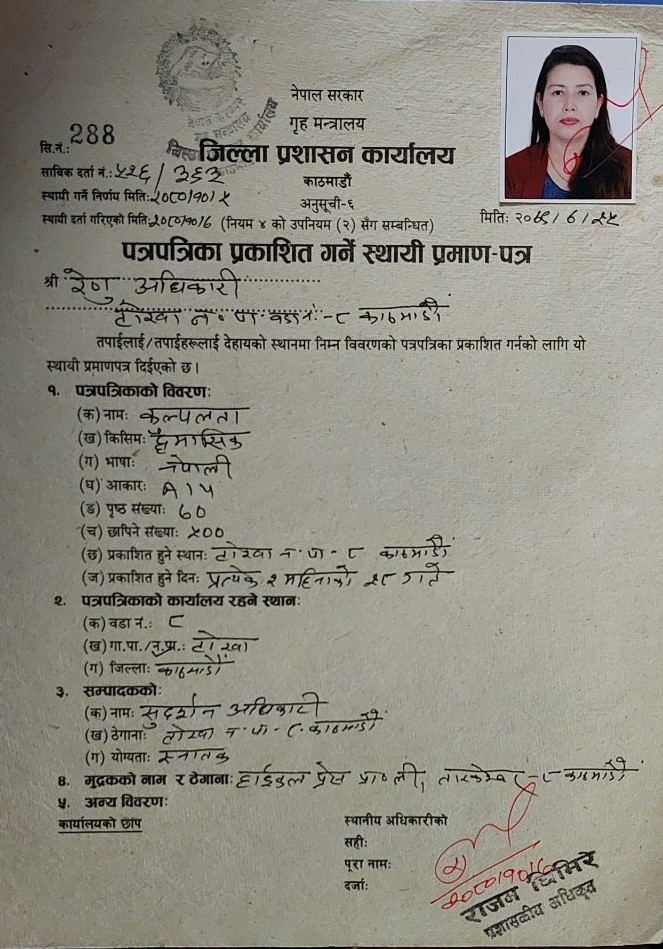 नेपाल सरकार
गृह मन्त्रालय
सि.नं.: 288
जिल्ला प्रशासन कार्यालय
साविक दर्ता नं.: ५२६/३६२
काठमाडौं
स्थायी गर्ने निर्णय मिति: २०८०/१०/५
अनुसूची-६
स्थायी दर्ता गरिएको मिति: २०८०/१०/६ (नियम ४ को उपनियम (२) सँग सम्बन्धित)
मिति: २०
पत्रपत्रिका प्रकाशित गर्ने स्थायी प्रमाण-पत्र
श्री रेणु अधिकारी
टोखा न.पा वडा नं.-८ काठमाडौं
तपाईलाई/तपाईहरूलाई देहायको स्थानमा निम्न विवरणको पत्रपत्रिका प्रकाशित गर्नको लागि यो
स्थायी प्रमाणपत्र दिईएको छ।
१. पत्रपत्रिकाको विवरण:
(क) नाम: कल्पलता
(ख) किसिम: द्वैमासिक
(ग) भाषा: नेपाली
(घ) आकार: A14
(ङ) पृष्ठ संख्या: ६०
(च) छापिने संख्या: ५००
(छ) प्रकाशित हुने स्थान: टोखा न.पा-८ काठमाडौं
(ज) प्रकाशित हुने दिन: प्रत्येक २ महिनाको २८ गते
२. पत्रपत्रिकाको कार्यालय रहने स्थान:
(क) वडा नं.: ८
(ख) गा.पा./न.पा.: टोखा
(ग) जिल्ला: काठमाडौं
३. सम्पादकको:
(क) नाम: सुदर्शन अधिकारी
(ख) ठेगाना: टोखा न.पा-८ काठमाडौं
(ग) योग्यता: स्नातक
४. मुद्रकको नाम र ठेगाना: हाईकुल प्रेस प्रा०ली, तारकेश्वर-८ काठमाडौं
५. अन्य विवरण:
कार्यालयको छाप
स्थानीय अधिकारीको
सही:
पूरा नाम:
दर्जा:
२०८०/१०/६
राजन घिमिरे
प्रशासकीय अधिकृत